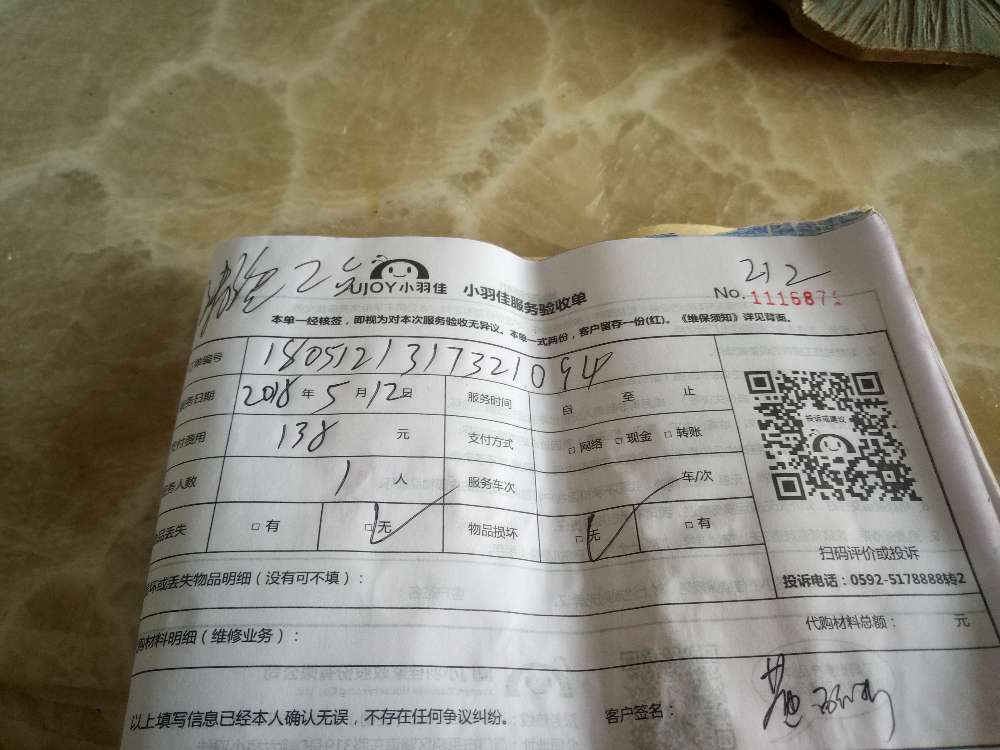 212
UJOY小羽佳 小羽佳服务验收单 No.
本单一经核签，即视为对本次服务验收无异议。本单一式两份，客户留存一份(红)。《维保须知》详见背面。
单编号 180512131732109
服务日期 2018 年 5 月 12 日 服务时间 自 至 止
支付费用 138 元 支付方式 □ 网络 □ 现金 □ 转账
务人数 1 人 服务车次 车/次
品丢失 □ 有 □ 无 物品损坏 □ 无 □ 有
投诉或建议
扫码评价或投诉
投诉电话：0592-5178888转2
坏或丢失物品明细（没有可不填）：
购材料明细（维修业务）： 代购材料总额： 元
以上填写信息已经本人确认无误，不存在任何争议纠纷。 客户签名：